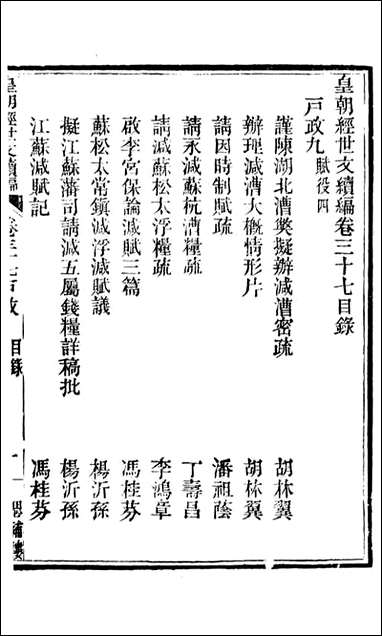 皇朝經世文續編卷三十七目錄
戶政九賦役四
謹陳湖北漕弊擬辦減漕密疏 胡林翼
辦理減漕大概情形片 胡林翼
請因時制賦疏 潘祖蔭
請永減蘇杭漕糧疏 丁壽昌
請減蘇松太浮糧疏 李鴻章
啟李宮保論減賦三篇 馮桂芬
蘇松太常鎮減浮減賦議 楊沂孫
擬江蘇藩司請減五屬錢糧詳稿批 楊沂孫
江蘇減賦記 馮桂芬
皇朝經世文續編 卷三十七戶政 目錄 一 思補樓